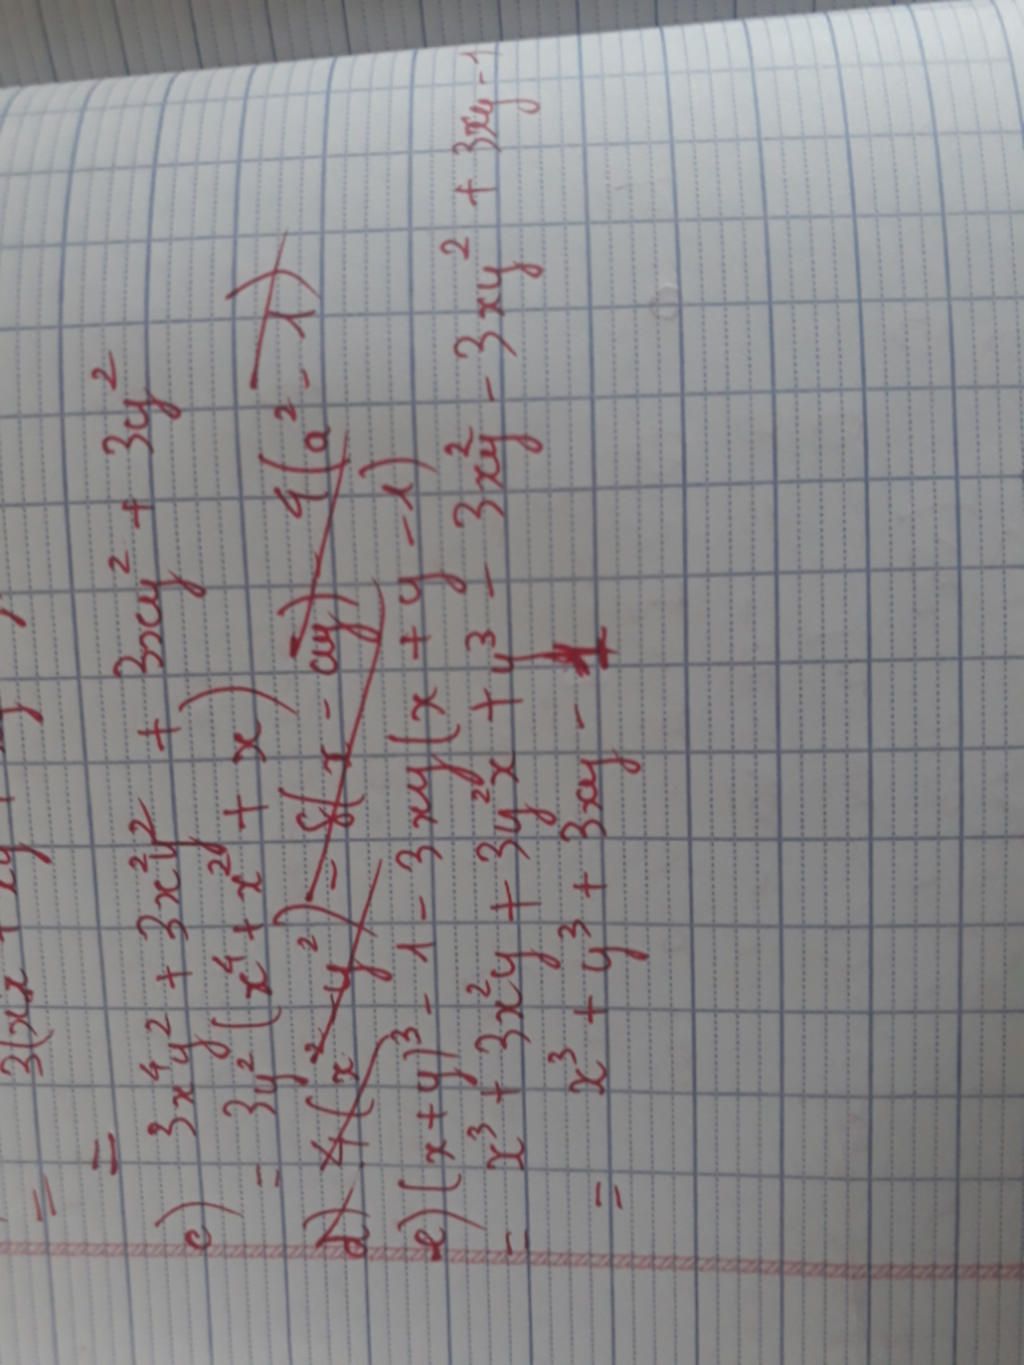 = 3(xz + xy
=
c) 3x⁴y² + 3x²y² + 3xy² + 3y²
= 3y²(x⁴ + x² + x)
d) 4(x² - y²) - 8(x - ay) - 4(a² - 1)
e) (x + y)³ - 1 - 3xy(x + y - 1)
= x³ + 3x²y + 3y²x + y³ - 3xy² - 3xy² + 3xy - 1
= x³ + y³ + 3xy - 1